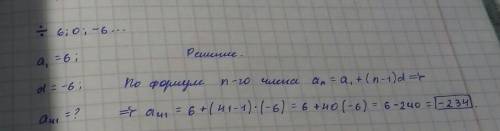 ÷ 6; 0; -6...
a₁ = 6; Решение.
d = -6; По формуле n-го члена aₙ = a₁ + (n-1)d ⇒
a₄₁ = ? ⇒ a₄₁ = 6 + (41-1)·(-6) = 6 + 40(-6) = 6 - 240 = -234.